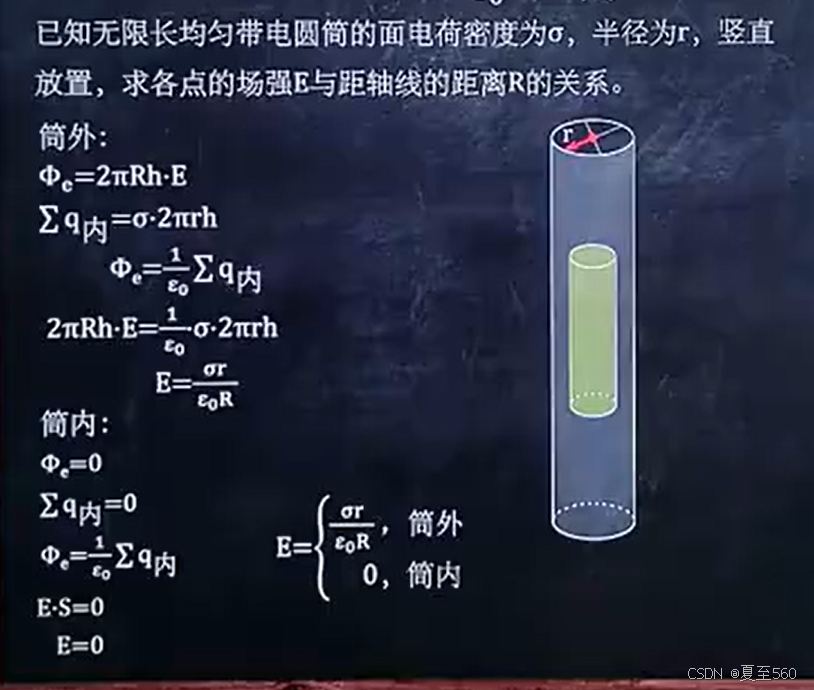 已知无限长均匀带电圆筒的面电荷密度为σ，半径为r，竖直
放置，求各点的场强E与距轴线的距离R的关系。
筒外：
Φₑ=2πRh·E
∑q内=σ·2πrh
Φₑ=1/ε₀∑q内
2πRh·E=1/ε₀·σ·2πrh
E=σr/ε₀R
筒内：
Φₑ=0
∑q内=0
Φₑ=1/ε₀∑q内
E·S=0
E=0
E={σr/ε₀R，筒外
0，筒内
r
CSDN @夏至560